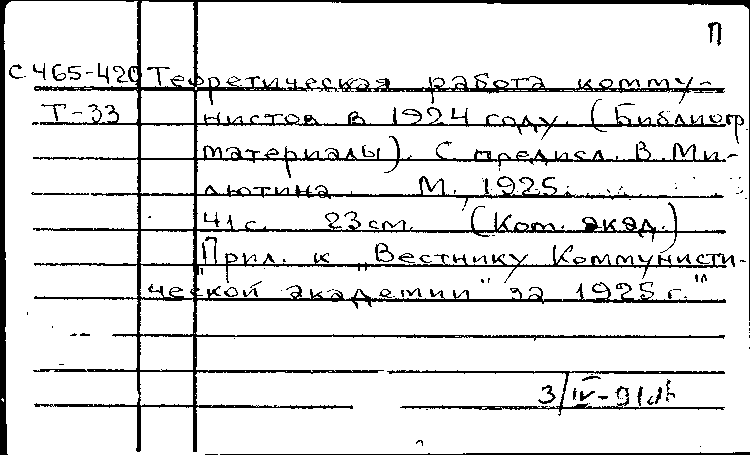 П
С 465-420 Теоретическая работа комму-
Т-33 нистов в 1924 году. (Библиогр.
материалы). С предисл. В. Ми-
лютина. М., 1925.
41 с. 23 см. (Ком. акад.)
"Прил. к „Вестнику Коммунисти-
ческой академии" за 1925 г."
3/IV-91